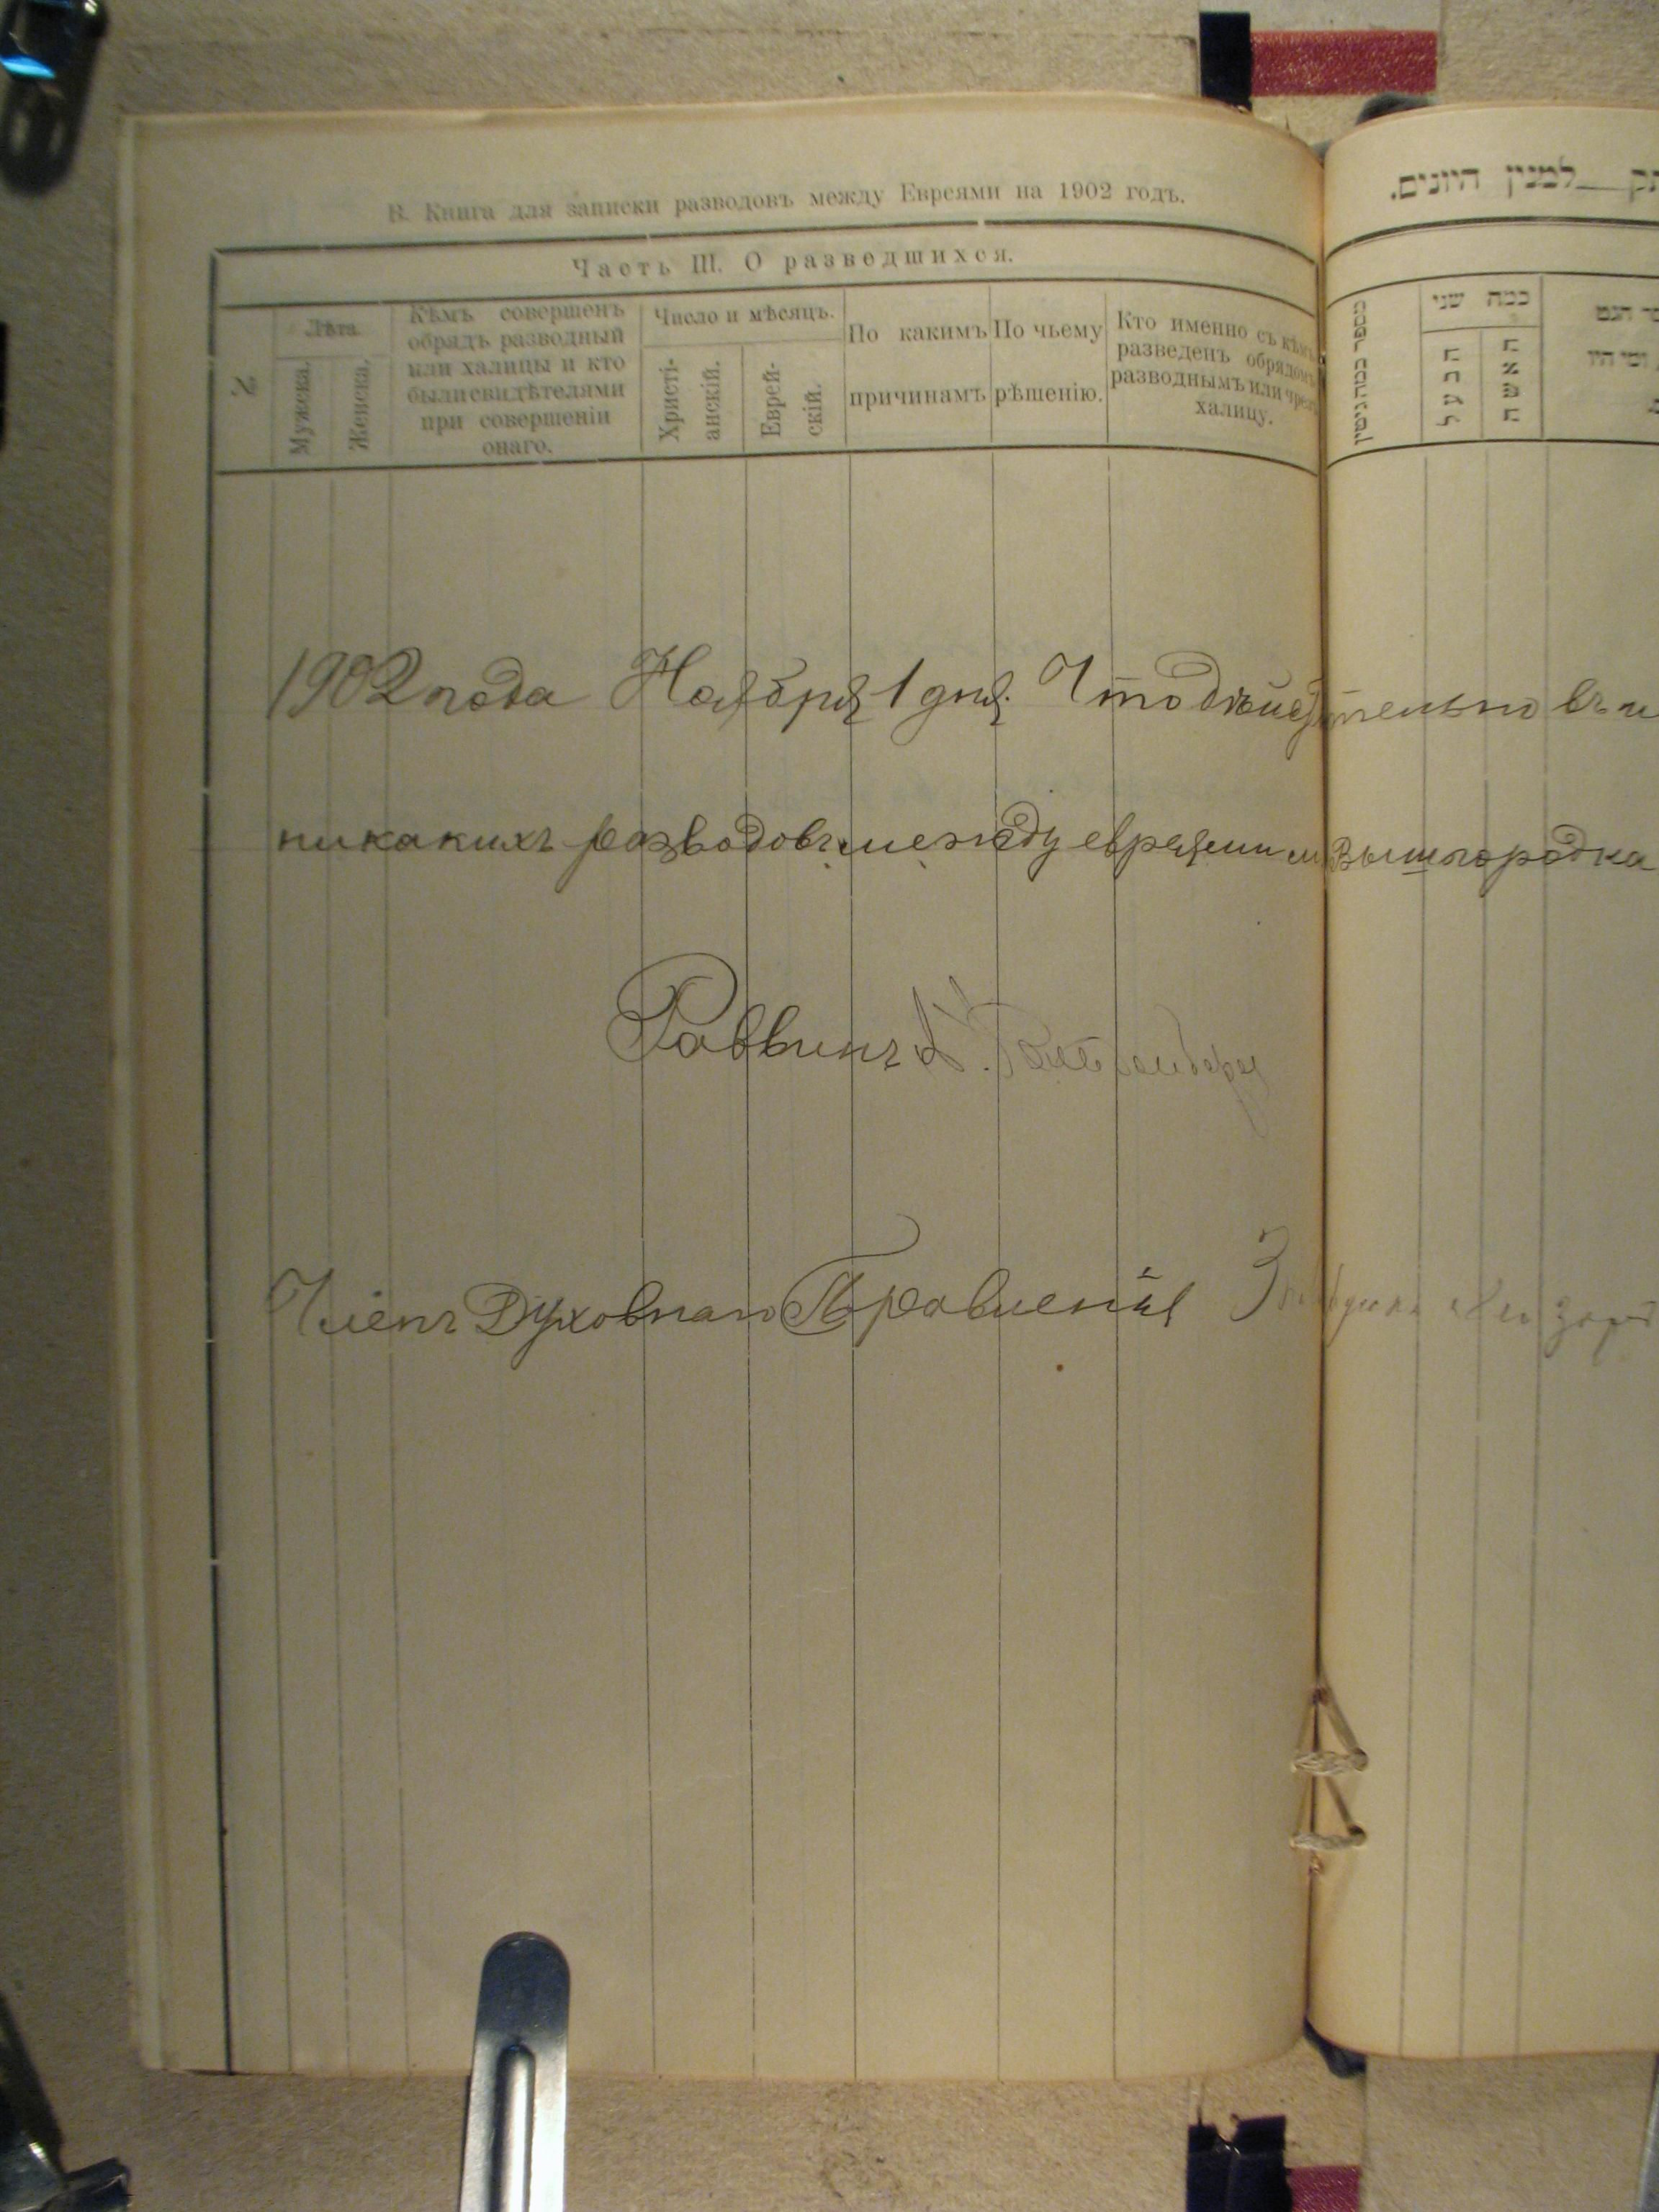 В. Книга для записки разводовъ между Евреями на 1902 годъ.
Часть III. О разведшихся.
№
Лѣта.
Мужеска.
Женска.
Кѣмъ совершенъ
обрядъ разводный
или халицы и кто
были свидѣтелями
при совершеніи
онаго.
Число и мѣсяцъ.
Христі-
анскій.
Еврей-
скій.
По какимъ
причинамъ
По чьему
рѣшенію.
Кто именно съ кѣмъ
разведенъ обрядомъ
разводнымъ или чрезъ
халицу.
למנין היונים.
כמה שני
הבעל
האשה
1902 года Ноября 1 дня. Что дѣйствительно въ
никакихъ разводовъ между евреями м Вышгородка
Раввинъ
Членъ Духовнаго Правленія